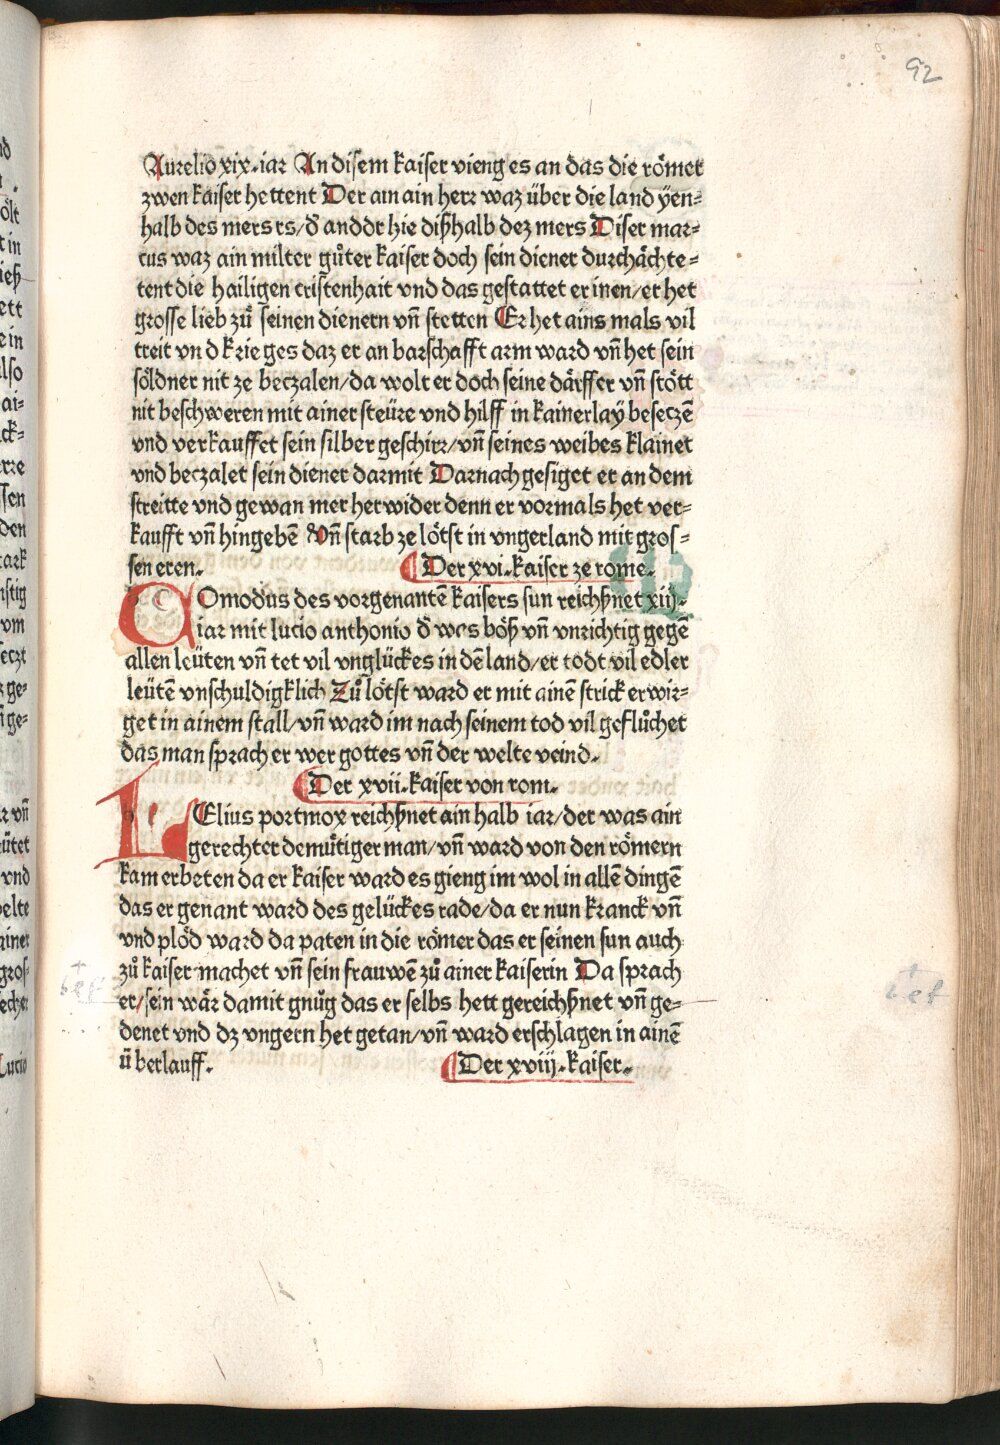 92
Aurelio xix. iar An disem kaiser vieng es an das die römer
zwen kaiser hettent Der ain ain herr waz über die land yen-
halb des mers rs/ đ anddr hie dißhalb dez mers Diser mar-
cus waz ain milter gůter kaiser doch sein diener durchächte-
tent die hailigen cristenhait vnd das gestattet er inen/ er het
grosse lieb zů seinen dienern vn̄ stetten Er het ains mals vil
streit vn d krie ges daz er an barschafft arm ward vn̄ het sein
söldner nit ze beczalen/ da wolt er doch seine därffer vn̄ stött
nit beschweren mit ainer steüre vnd hilff in kainerlaÿ beseczē
vnd verkauffet sein silber geschirr/ vn̄ seines weibes klainet
vnd beczalet sein diener darmit Darnach gesiget er an dem
streitte vnd gewan mer her wider denn er vormals het ver-
kaufft vn̄ hingebē Vn̄ starb ze lötst in vngerland mit gros-
sen eren. Der xvi. kaiser ze rome.
COmodus des vorgenantē kaisers sun reichßnet xiij.
iar mit lucio anthonio đ was böß vn̄ vnrichtig gegē
allen leüten vn̄ tet vil vnglückes in dē land/ er todt vil edler
leütē vnschuldigklich Zů lötst ward er mit ainē strick erwir-
get in ainem stall/ vn̄ ward im nach seinem tod vil geflůchet
das man sprach er wer gottes vn̄ der welte veind.
Der xvii. kaiser von rom.
HElius portmox reichßnet ain halb iar/ der was ain
gerechter demůtiger man/ vn̄ ward von den römern
kam erbeten da er kaiser ward es gieng im wol in allē dingē
das er genant ward des gelückes rade/ da er nun kranck vn̄
vnd plöd ward da paten in die römer das er seinen sun auch
zů kaiser machet vn̄ sein frauwē zů ainer kaiserin Da sprach
er/ sein wär damit gnůg das er selbs hett gereichßnet vn̄ ge-
denet vnd dz vngern het getan/ vn̄ ward erschlagen in ainē
ü berlauff. Der xviij. kaiser.